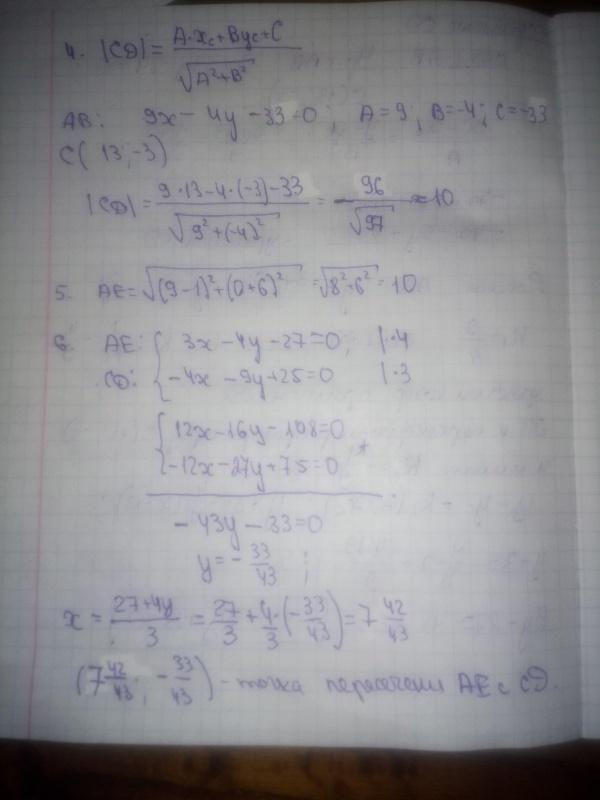 4. |CD| = (A·x_c + By_c + C) / √(A²+B²) ;
AB: 9x - 4y - 33 = 0 ; A = 9 ; B = -4 ; C = -33
C( 13 ; -3)
|CD| = (9·13 - 4·(-3) - 33) / √(9² + (-4)²) = 96/√97 ≈ 10
5. AE = √((9-1)² + (0+6)²) = √(8² + 6²) = 10
6. AE: { 3x - 4y - 27 = 0; |·4
CD: { -4x - 9y + 25 = 0 |·3
{ 12x - 16y - 108 = 0
{ -12x - 27y + 75 = 0 +
- 43y - 33 = 0
y = - 33/43 ;
x = (27+4y)/3 = 27/3 + 4/3 · (- 33/43) = 7 42/43
(7 42/43 ; - 33/43) - точка пересечени AE с CD.